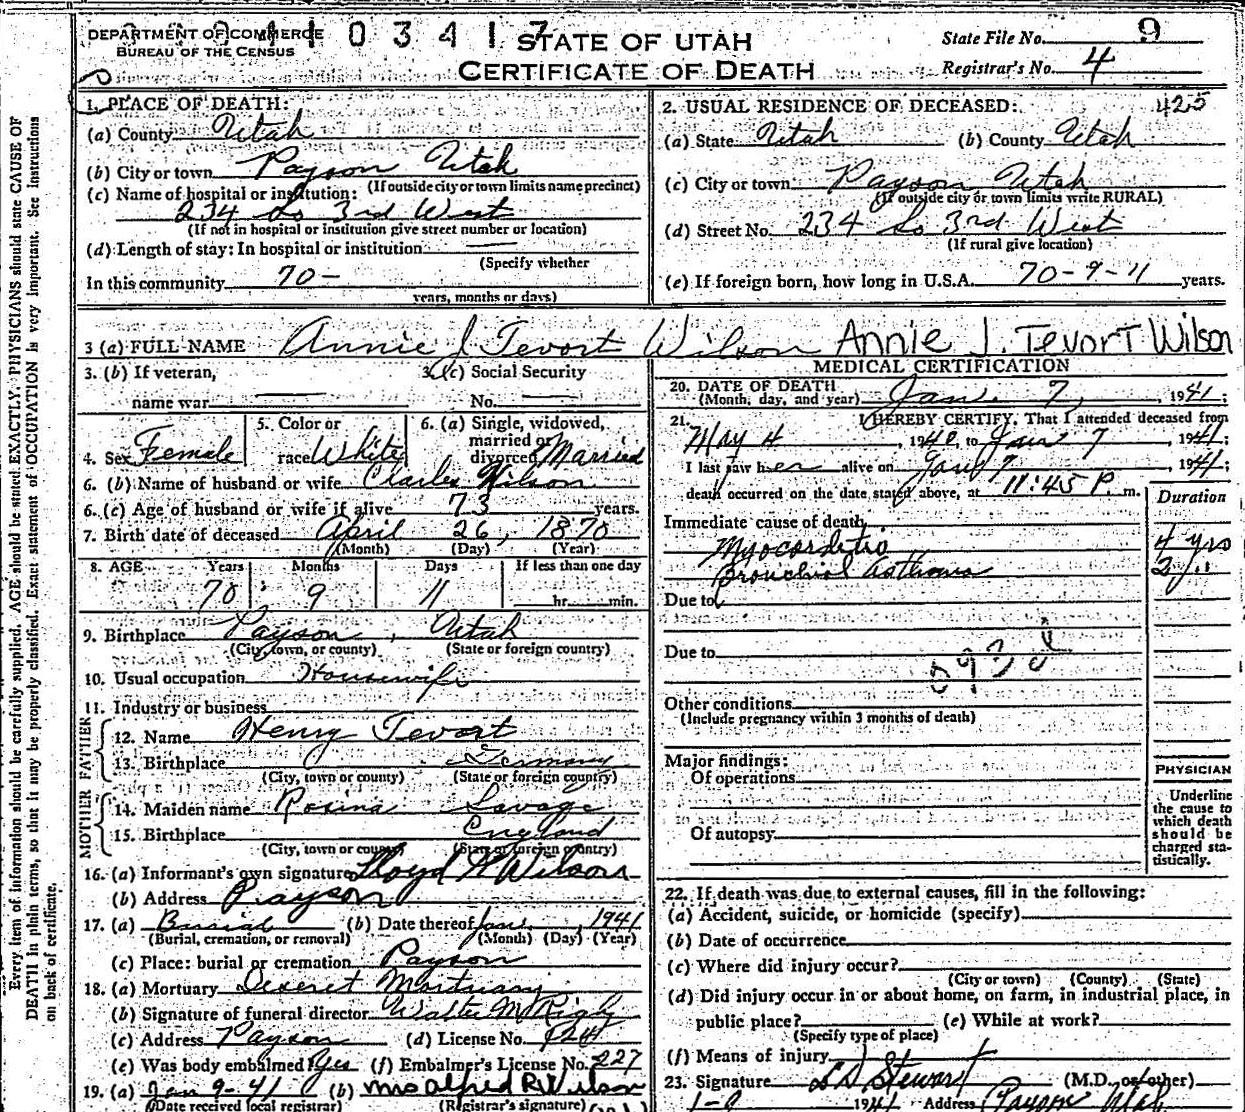 DEPARTMENT OF COMMERCE
BUREAU OF THE CENSUS
10341
STATE OF UTAH
CERTIFICATE OF DEATH
State File No. 9
Registrar's No. 4
1. PLACE OF DEATH:
(a) County Utah
(b) City or town Payson Utah
(If outside city or town limits name precinct)
(c) Name of hospital or institution:
234 So 3rd West
(If not in hospital or institution give street number or location)
(d) Length of stay: In hospital or institution
(Specify whether
In this community 70-
years, months or days)
2. USUAL RESIDENCE OF DECEASED: 425
(a) State Utah (b) County Utah
(c) City or town: Payson, Utah
(If outside city or town limits write RURAL)
(d) Street No. 234 So 3rd West
(If rural give location)
(e) If foreign born, how long in U.S.A. 70-9-11 years.
3 (a) FULL NAME Annie J Tevort Wilson Annie J. Tevort Wilson
3. (b) If veteran,
name war
3. (c) Social Security
No.
4. Sex Female
5. Color or
race White
6. (a) Single, widowed,
married or
divorced Married
6. (b) Name of husband or wife Charles Wilson
6. (c) Age of husband or wife if alive 73 years.
7. Birth date of deceased April 26, 1870
(Month) (Day) (Year)
8. AGE Years Months Days If less than one day
70 9 11 hr. min.
9. Birthplace Payson, Utah
(City, town, or county) (State or foreign country)
10. Usual occupation Housewife
11. Industry or business
FATHER
12. Name Henry Tevort
13. Birthplace Germany
(City, town or county) (State or foreign country)
MOTHER
14. Maiden name Rosina Savage
15. Birthplace England
(City, town or county) (State or foreign country)
16. (a) Informant's own signature Lloyd A Wilson
(b) Address Payson
17. (a) Burial (b) Date thereof Jan. 1941
(Burial, cremation, or removal) (Month) (Day) (Year)
(c) Place: burial or cremation Payson
18. (a) Mortuary Deseret Mortuary
(b) Signature of funeral director Walter M Rigby
(c) Address Payson (d) License No.
(e) Was body embalmed? Yes (f) Embalmer's License No. 227
19. (a) Jan 9-41 (b) Mrs Alfred R. Wilson
(Date received local registrar) (Registrar's signature)
MEDICAL CERTIFICATION
20. DATE OF DEATH
(Month, day, and year) Jan. 7, 1941;
21. I HEREBY CERTIFY, That I attended deceased from
May 4, 1940, to Jan 7, 1941;
I last saw her alive on Jan 7, 1941;
death occurred on the date stated above, at 11:45 P. m.
Duration
Immediate cause of death
Myocarditis 4 yrs
Bronchial asthma 2 y..
Due to
Due to
Other conditions
(Include pregnancy within 3 months of death)
Major findings:
Of operations
Of autopsy
PHYSICIAN
Underline
the cause to
which death
should be
charged sta-
tistically.
22. If death was due to external causes, fill in the following:
(a) Accident, suicide, or homicide (specify)
(b) Date of occurrence
(c) Where did injury occur?
(City or town) (County) (State)
(d) Did injury occur in or about home, on farm, in industrial place, in
public place? (e) While at work?
(Specify type of place)
(f) Means of injury
23. Signature L D Stewart (M.D. or other)
1941 Address Payson Utah
Every item of information should be carefully supplied. AGE should be stated EXACTLY. PHYSICIANS should state CAUSE OF
DEATH in plain terms, so that it may be properly classified. Exact statement of OCCUPATION is very important. See instructions
on back of certificate.